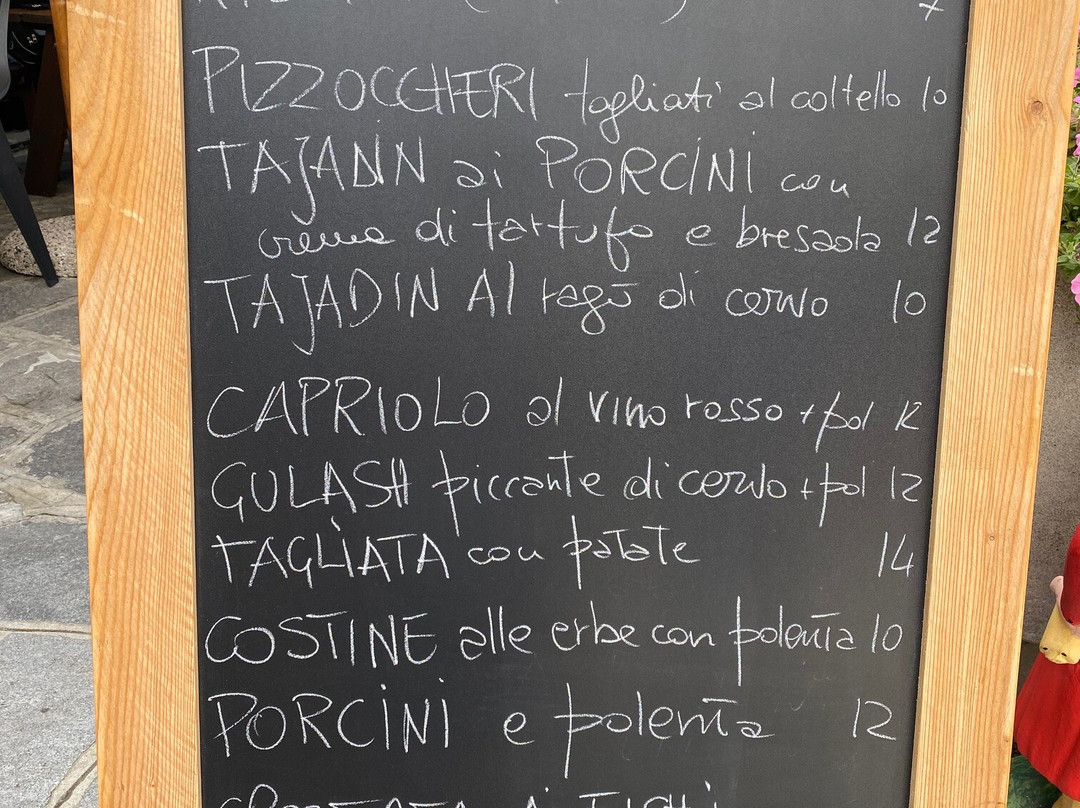 7
PIZZOCCHERI tagliati al coltello 10
TAJADIN ai PORCINI con
crema di tartufo e bresaola 12
TAJADIN Al ragù di cervo 10
CAPRIOLO al vino rosso + pol 12
GULASH piccante di cervo + pol 12
TAGLIATA con patate 14
COSTINE alle erbe con polenta 10
PORCINI e polenta 12